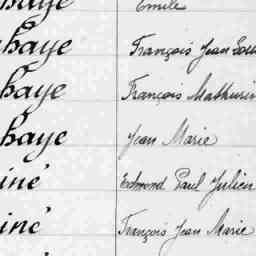 haye Emile
haye François Jean Lou
haye François Mathurin
haye Jean Marie
iné Edmond Paul Julien
iné François Jean Marie